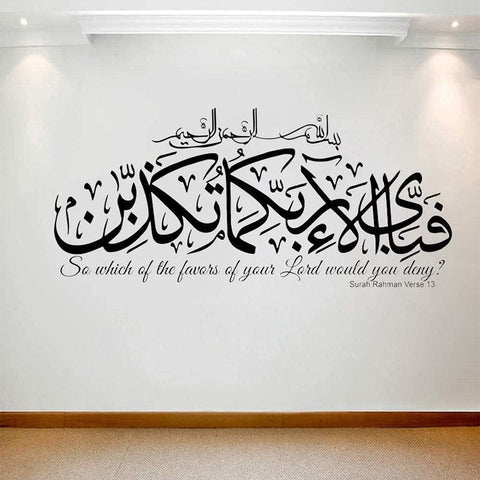 بسم الله الرحمن الرحيم
فبأي آلاء ربكما تكذبن
So which of the favors of your Lord would you deny?
Surah Rahman Verse 13